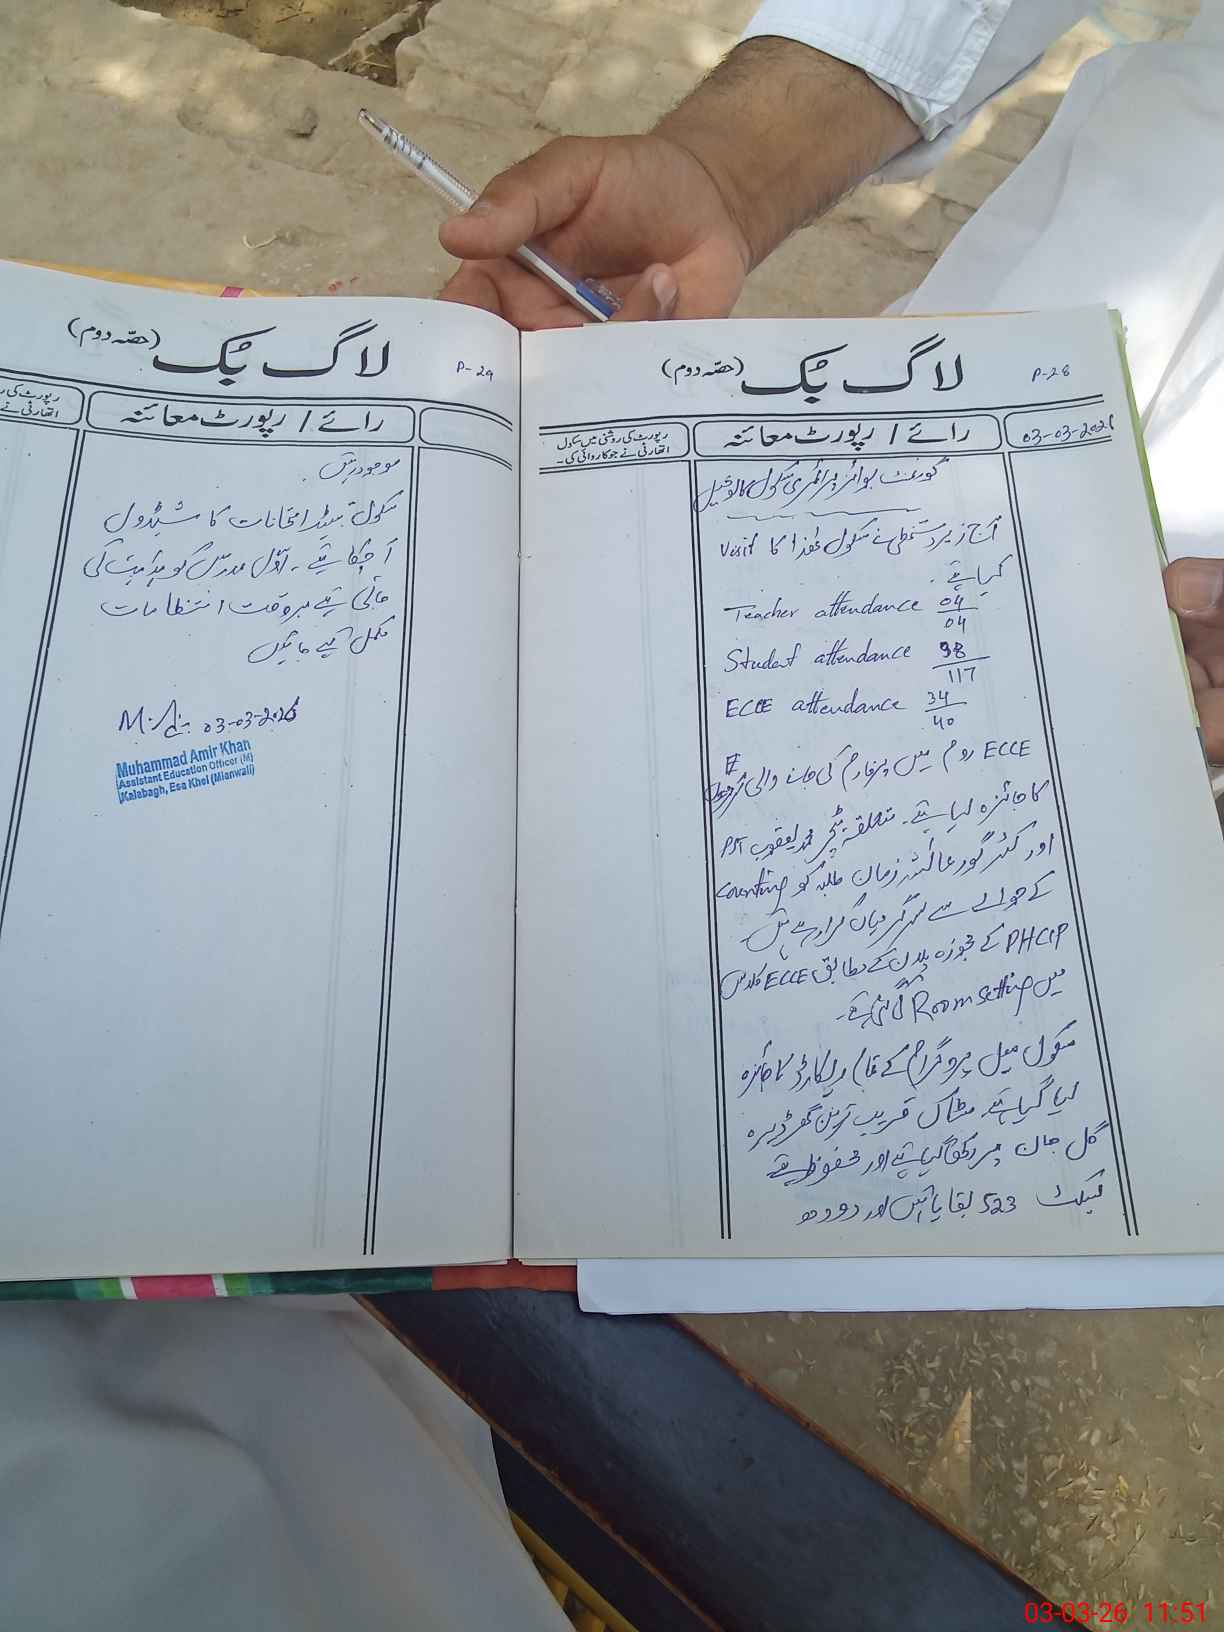 P-28
لاگ بُک (حصّہ دوم)
03-03-2026
رائے / رپورٹ معائنہ
رپورٹ کی روشنی میں سکول
اتھارٹی نے جو کاروائی کی۔
گورنمنٹ بوائز پرائمری سکول کالوخیل
آج زیر دستخطی نے سکول ھذا کا Visit
کیا ہے۔
Teacher attendance 04/04
Student attendance 98/117
ECCE attendance 34/40
ECCE روم میں پرفارم کی جانے والی
کا جائزہ لیا ہے۔ متعلقہ ٹیچر محمد یعقوب PST
اور کئر گور زمان طلبہ کو counting
کے حوالے سے سرگرمیاں کروا رہے ہیں۔
PHCIP کے مجوزہ پلان کے مطابق ECCE کلاس
میں Room setting کی گئی ہے۔
سکول میل پروگرام کے تمام ریکارڈ کا جائزہ
لیا گیا ہے۔ سٹاک قریب ترین گھر ڈیرہ
گل جان پر رکھا گیا ہے اور محفوظ ہے
بسکٹ 523 بقایا ہیں اور دودھ
P-29
لاگ بُک (حصّہ دوم)
رائے / رپورٹ معائنہ
رپورٹ کی ر
اتھارٹی نے
موجود ہیں۔
سکول بیسڈ امتحانات کا شیڈول
آ چکا ہے۔ اوّل مدرس کو ہدایت کی
جاتی ہے بروقت انتظامات
مکمل کیے جائیں
03-03-2026
Muhammad Amir Khan
Assistant Education Officer (M)
Kalabagh, Esa Khel (Mianwali)
03-03-26 11:51